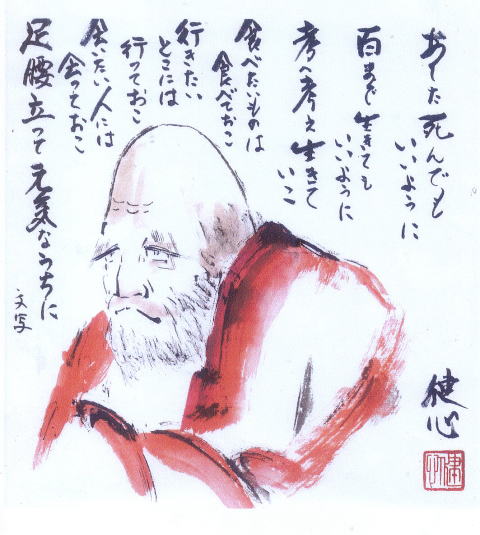 あした死んでも
いいように
百まで生きても
いいように
考え考え生きて
いこ
食べたいものは
食べておこ
行きたい
とこには
行っておこ
会いたい人には
会っておこ
足腰立って元気なうちに
健心